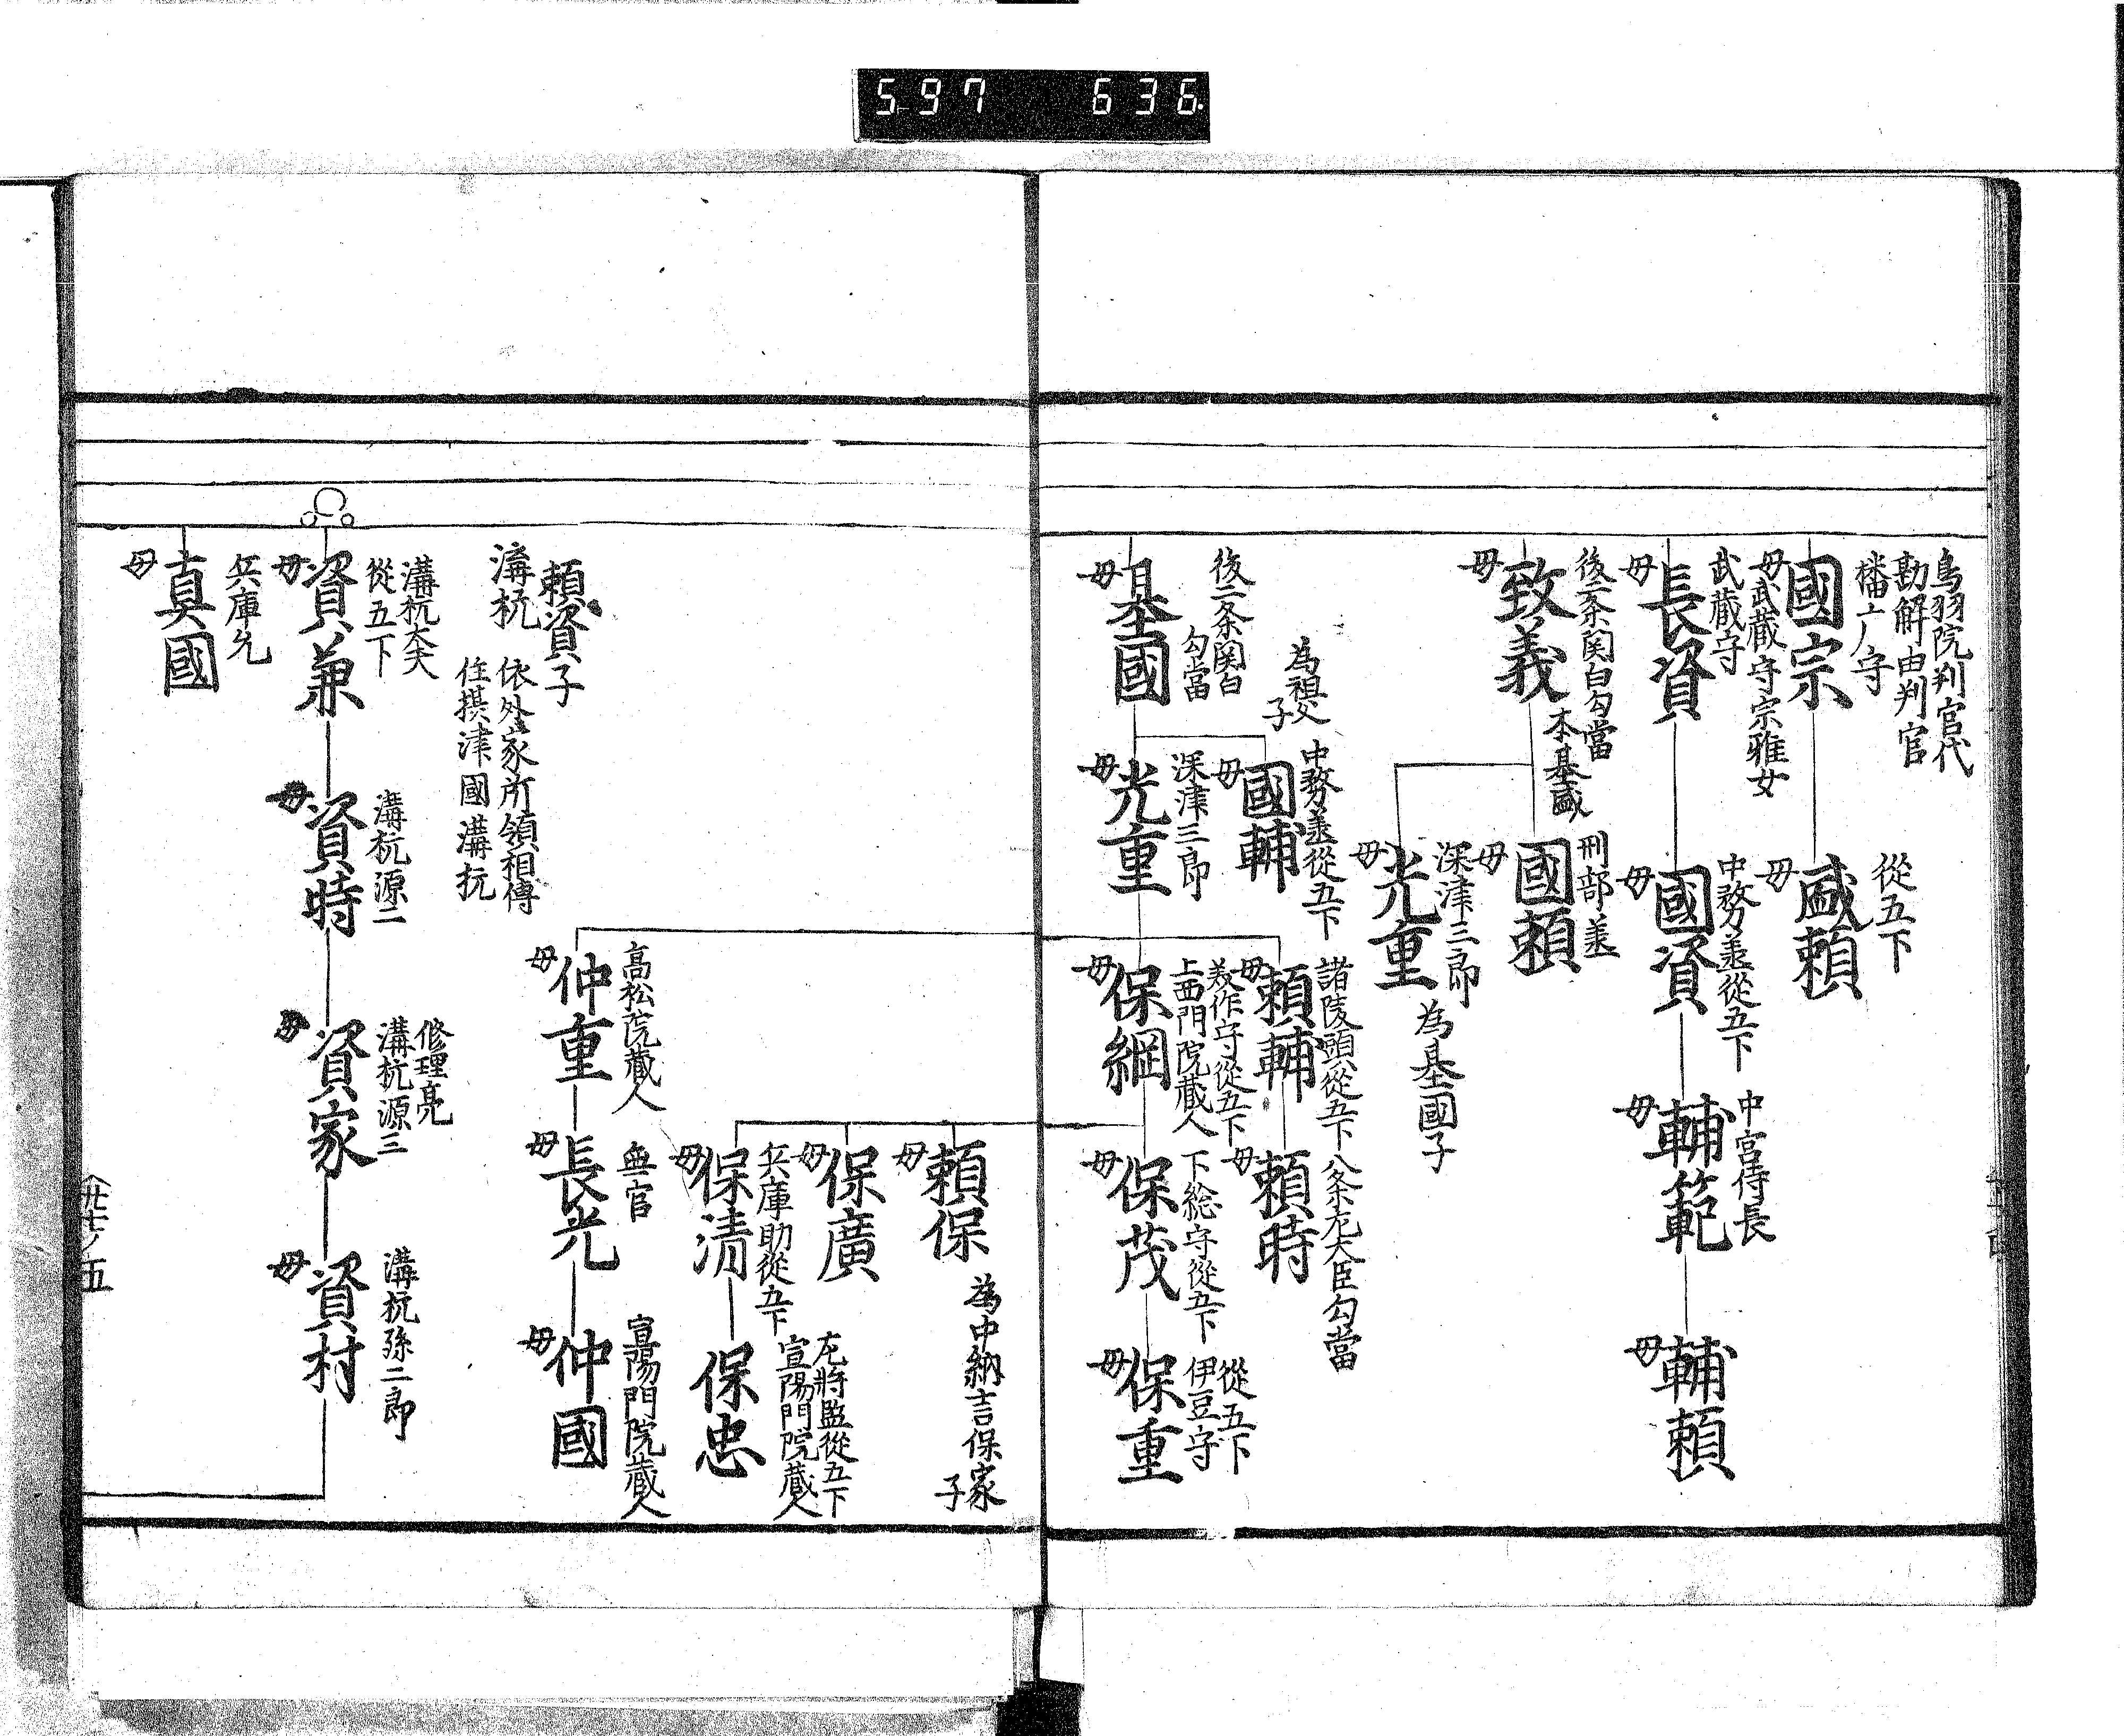 5-97 636.
鳥羽院判官代
勘解由判官
播广守
國宗
母武蔵守宗雅女
從五下
盛頼
母
武蔵守
長資
母
中務丞從五下
國資
母
中宮侍長
輔範
母
輔頼
母
後二条関白勾當
致義
母
本基盛
刑部丞
國頼
母
深津三郎
光重
母
為基國子
後二条関白
勾當
基國
母
為祖父
子
中務丞從五下
國輔
母
深津三郎
光重
母
諸陵頭從五下
頼輔
母
八条左大臣勾當
頼時
母
美作守從五下
上西門院蔵人
保綱
母
下総守從五下
保茂
母
從五下
伊豆守
保重
母
頼保
母
為中納言保家
子
保廣
母
兵庫助從五下
保清
母
左將監從五下
宣陽門院蔵人
保忠
高松院蔵人
仲重
母
無官
長光
母
宣陽門院蔵人
仲國
母
頼資子
溝杭
依外家所領相傳
住摂津國溝杭
溝杭大夫
從五下
資兼
母
溝杭源二
資時
母
修理亮
溝杭源三
資家
母
溝杭孫二郎
資村
母
兵庫允
真國
母
五